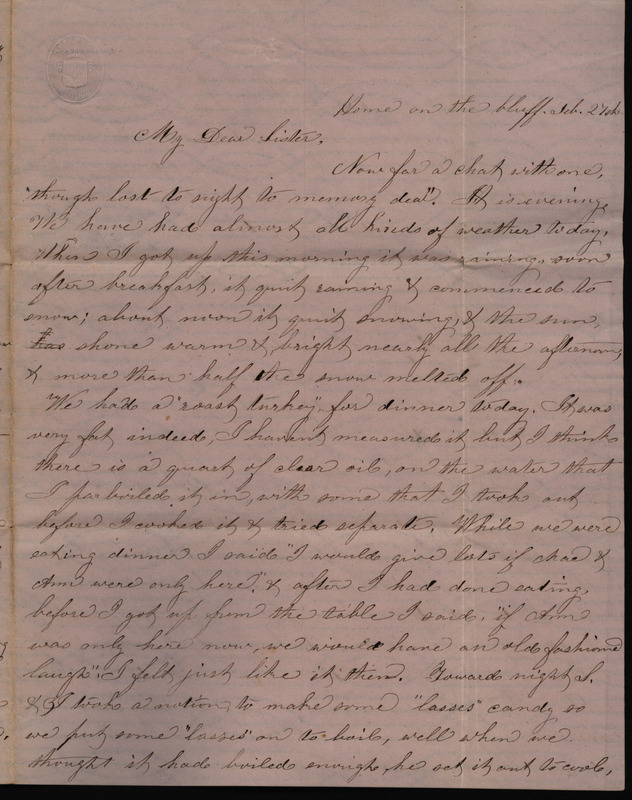 Home on the bluff. Feb. 27th
My Dear Sister.
Now for a chat with one,
"though lost to sight to memory dear". It is evening,
We have had almost all kinds of weather today,
When I got up this morning it was raining, soon
after breakfast, it quit raining & commenced to
snow; about noon it quit snowing, & the sun,
has shone warm & bright nearly all the afternoon,
& more than half the snow melted off.
We had a "roast turkey" for dinner today. It was
very fat indeed, I havent measured it but I think
there is a quart of clear oil, on the water that
I parboiled it in, with some that I took out
before I cooked it & tried separate. While we were
eating dinner I said "I would give lots if chae &
Am were only here". & after I had done eating,
before I got up from the table I said, "if Am
was only here now, we would have an old fashioned
laugh". I felt just like it then. Toward night S.
& I took a notion to make some "lasses" candy so
we put some "lasses" on to boil, well when we
thought it had boiled enough, he set it out to cool,